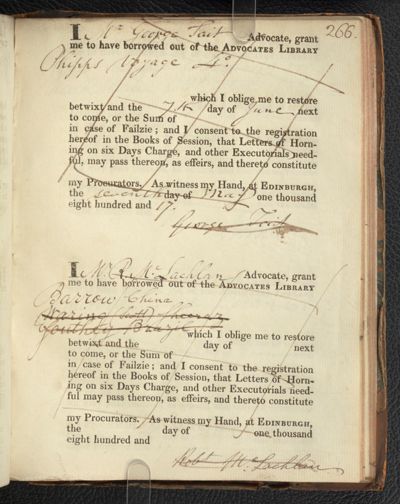 266.
I, Mr George Tait Advocate, grant
me to have borrowed out of the ADVOCATES LIBRARY
Phipps Voyage 4o.
which I oblige me to restore
betwixt and the 7th day of June next
to come, or the Sum of
in case of Failzie; and I consent to the registration
hereof in the Books of Session, that Letters of Horn-
ing on six Days Charge, and other Executorials need-
ful, may pass thereon, as effeirs, and thereto constitute
my Procurators. As witness my Hand, at EDINBURGH,
the seventh day of May one thousand
eight hundred and 17.
George Tait
I, Mr R. McLachlan Advocate, grant
me to have borrowed out of the ADVOCATES LIBRARY
Barrow China
Waring
which I oblige me to restore
betwixt and the day of next
to come, or the Sum of
in case of Failzie; and I consent to the registration
hereof in the Books of Session, that Letters of Horn-
ing on six Days Charge, and other Executorials need-
ful may pass thereon, as effeirs, and thereto constitute
my Procurators. As witness my Hand, at EDINBURGH,
the day of one thousand
eight hundred and
Robt McLachlan